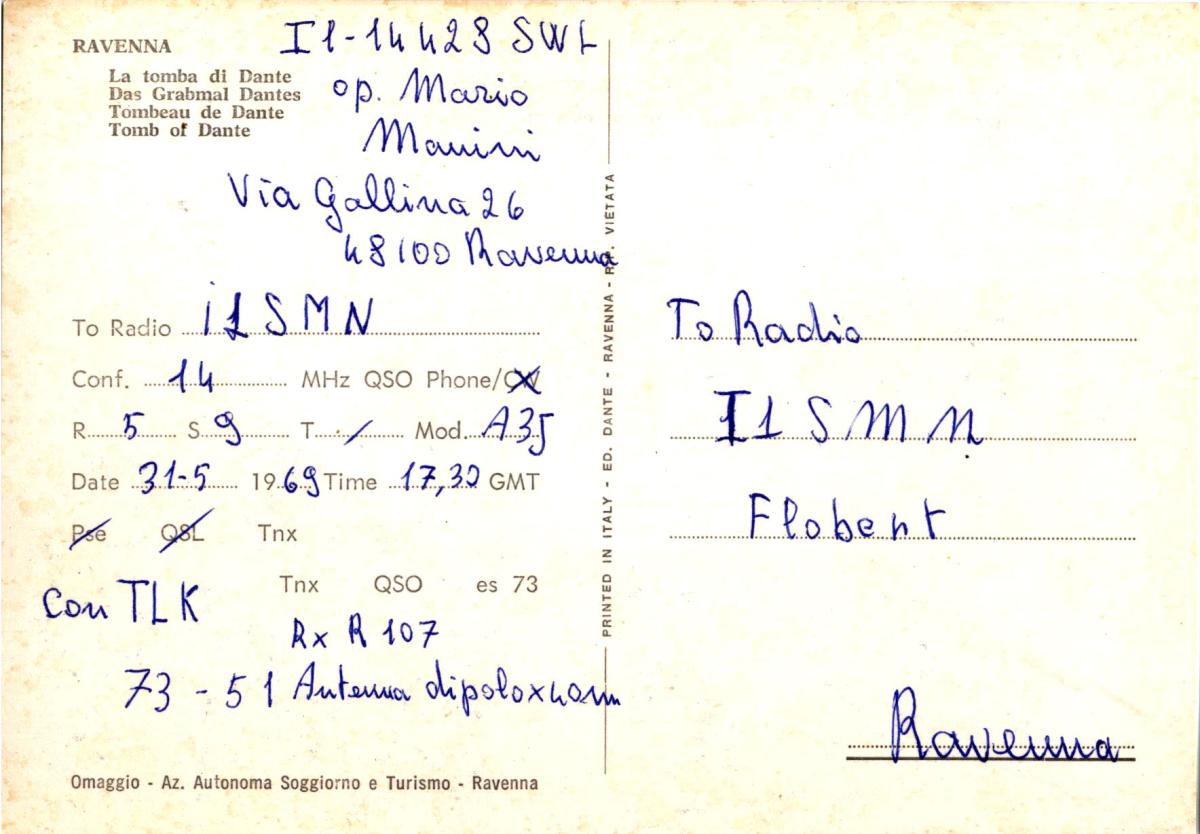 RAVENNA
La tomba di Dante
Das Grabmal Dantes
Tombeau de Dante
Tomb of Dante
I1-14428 SWL
op. Mario
Manini
Via Gallina 26
48100 Ravenna
To Radio i1SMN
Conf. 14 MHz QSO Phone/CW
R 5 S 9 T / Mod. A3J
Date 31-5 1969 Time 17,30 GMT
Pse QSL Tnx
Tnx QSO es 73
con TLK
Rx R 107
73 - 51 Antenna dipolo x 40m
Omaggio - Az. Autonoma Soggiorno e Turismo - Ravenna
PRINTED IN ITALY - ED. DANTE - RAVENNA - RIP. VIETATA
To Radio
I1SMN
Flobert
Ravenna